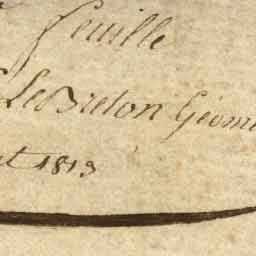 feuille
LeBreton Géom
et 1813